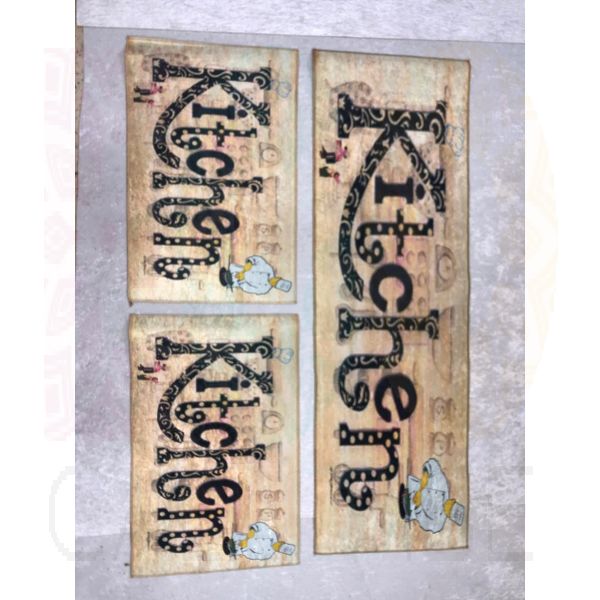 Kitchen
Kitchen
Kitchen